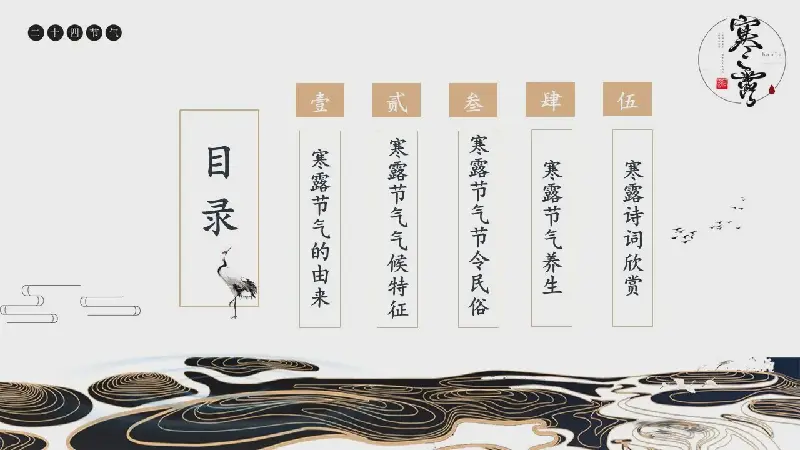 二十四节气
寒露
目录
壹
寒露节气的由来
贰
寒露节气气候特征
叁
寒露节气节令民俗
肆
寒露节气养生
伍
寒露诗词欣赏